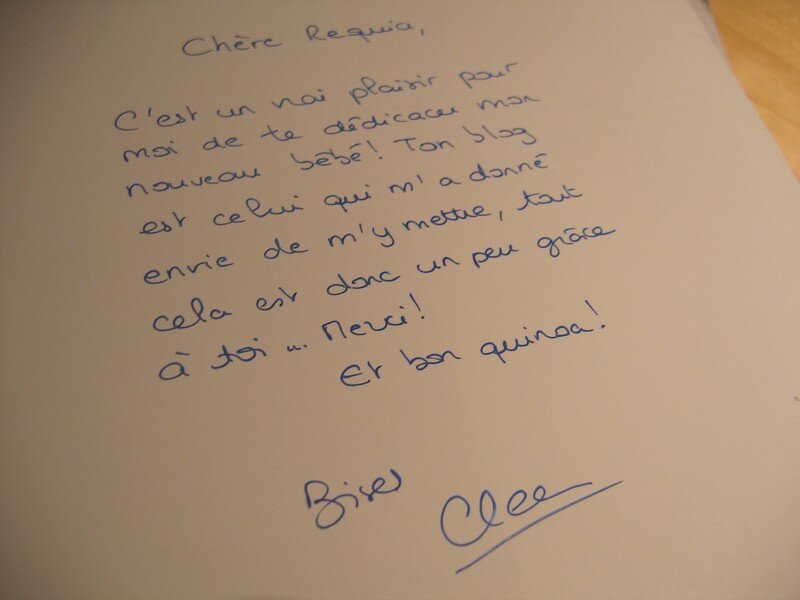 Chère Requia,
C'est un vrai plaisir pour
moi de te dédicacer mon
nouveau bébé! Ton blog
est celui qui m'a donné
envie de m'y mettre, tout
cela est donc un peu grâce
à toi ... Merci!
Et bon quinoa!
Bises
Clea